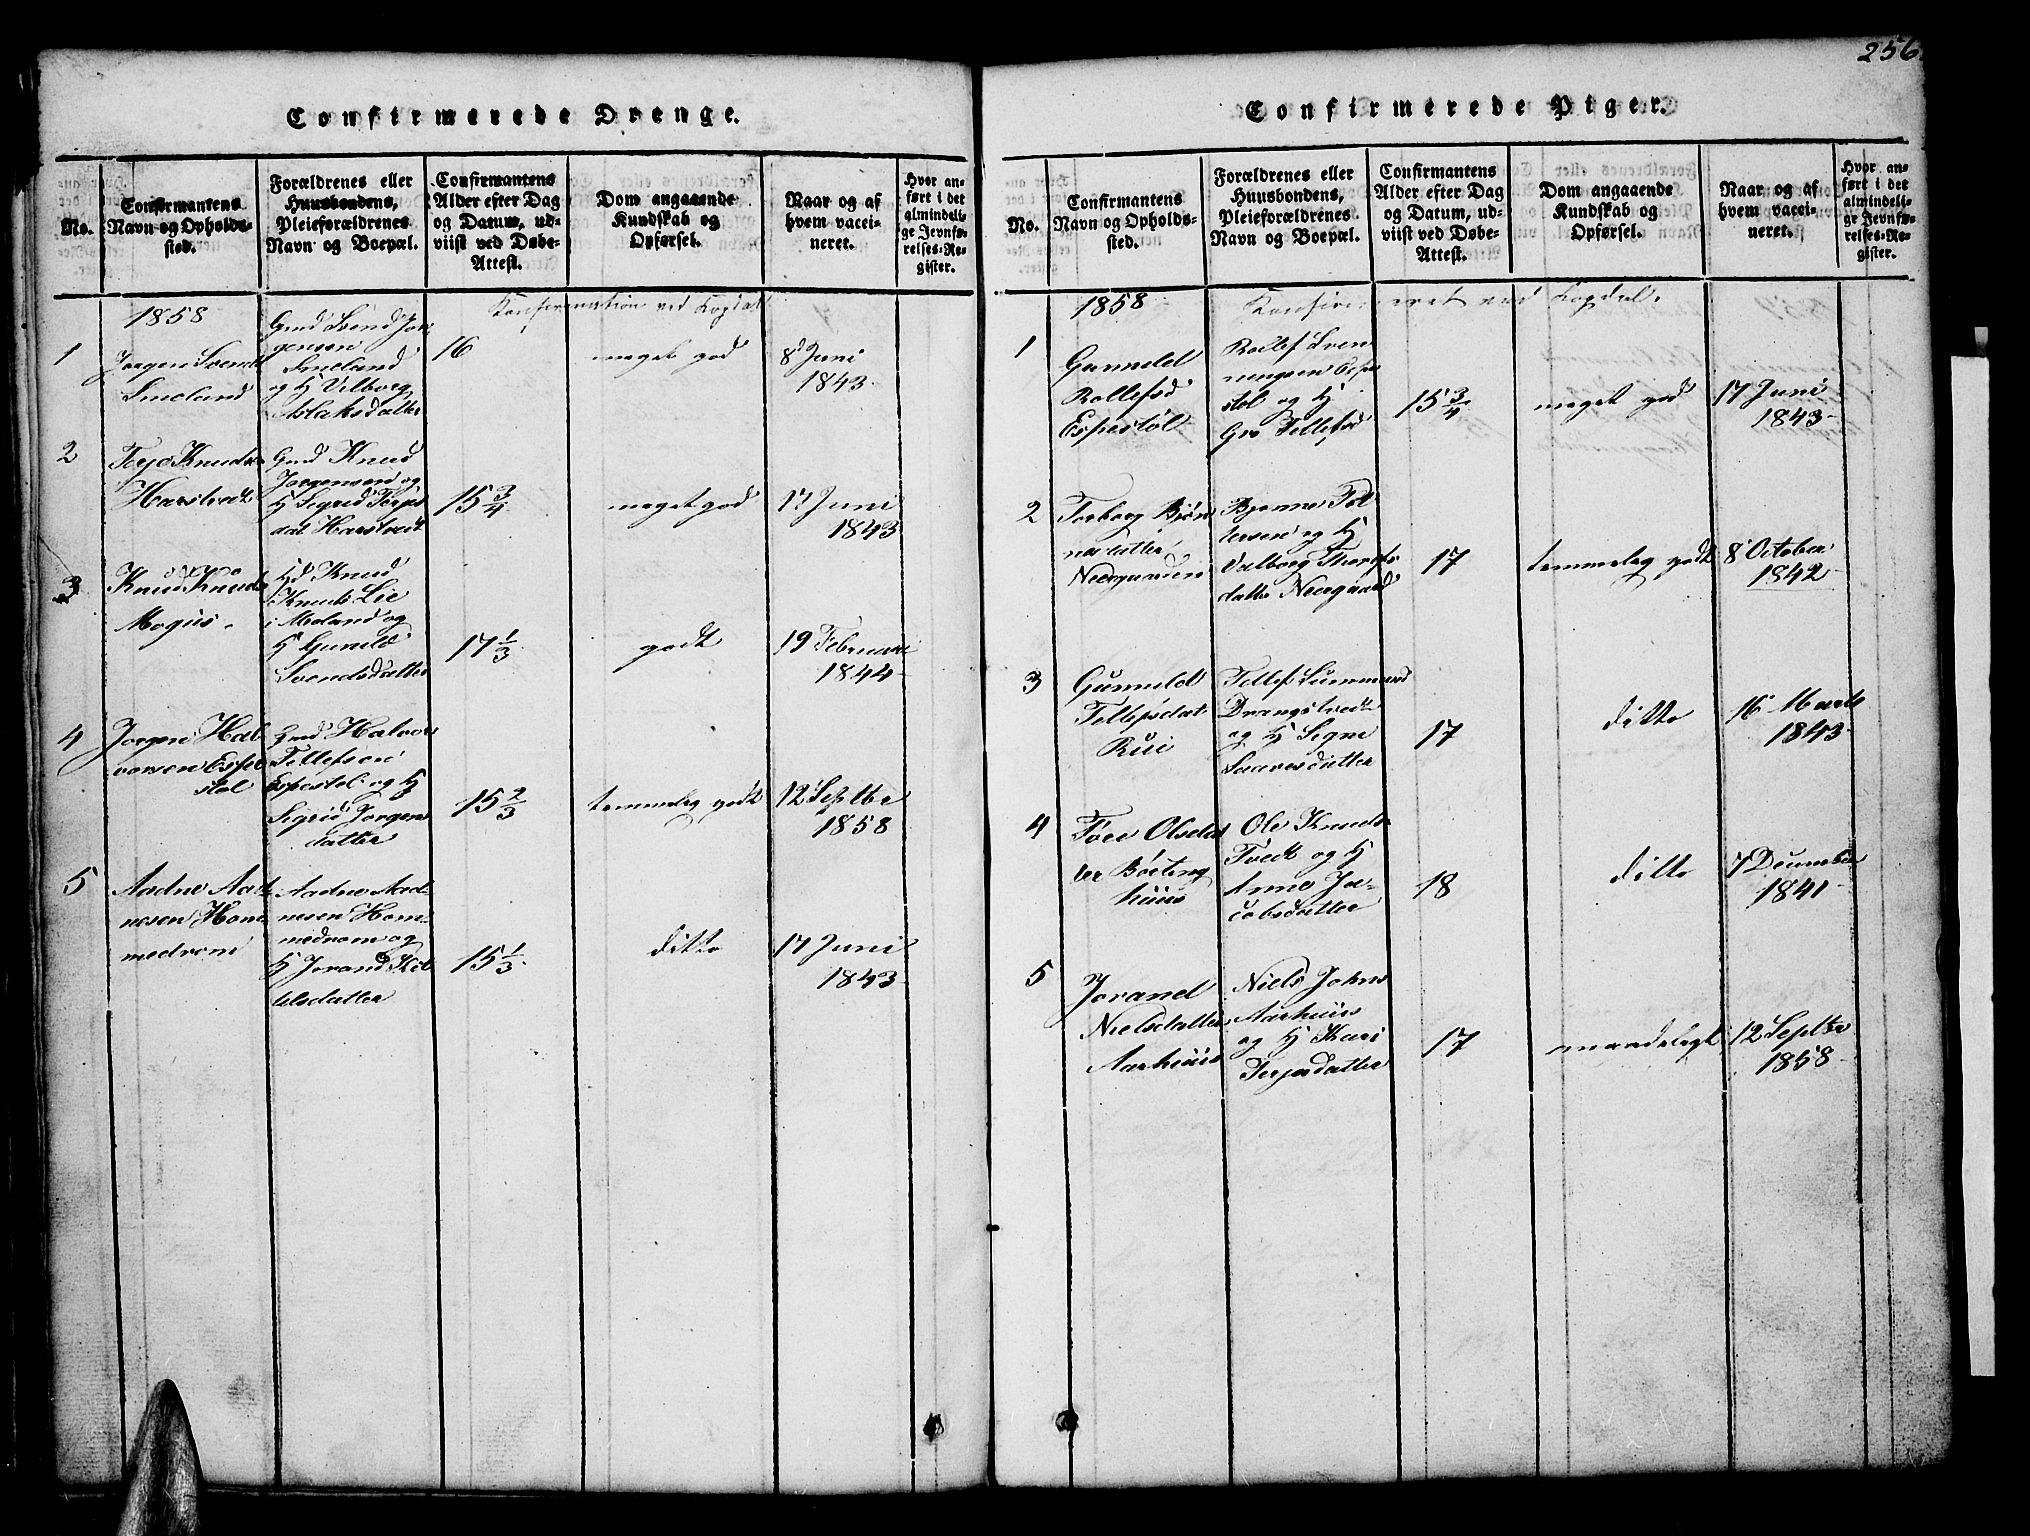 256
Confirmerede Drenge.
No.
Confirmantens
Navn og Opholds-
sted.
Forældrenes eller
Huusbondens,
Pleieforældrenes
Navn og Boepæl.
Confirmantens
Alder efter Dag
og Datum, ud-
viist ved Døbe-
Attest.
Dom angaaende
Kundskab og
Opførsel.
Naar og af
hvem vacci-
neret.
Hvor an-
ført i det
almindeli-
ge Jevnfø-
relses-Re-
gister.
1858
Konfirmation ved Kopdal
1
Jørgen Svends
Smeland
Gmd Svend Jør
gensen
Smeland
og H Vilborg
Aslaksdatter
16
meget god
8d Juni
1843
2
Terje Knuds
Harstvedt
Gmd Knud
Jørgensen og
H Sigrid Terjes
dat Harstvedt
15 3/4
meget god
17 Juni
1843
3
Knud Knuds
Mogus.
Knud
Knuds Lie
i Moland og
H Gunild
Svendsdatter
17 1/3
godt
19 Februar
1844
4
Jørgen Hal
vorsen Espe
støl
Gmd Halvor
Tellefsen
Espestøl og H
Sigrid Jørgens
datter
15 2/3
temmelig godt
12 Septbr
1858
5
Aadne Aad
nesen Hom
medrom
Aadne Aad
nesen Hom
medrom og
H Jorand Kit
telsdatter
15 1/3
ditto
17 Juni
1843
Confirmerede Piger.
No.
Confirmantens
Navn og Opholds-
sted.
Forældrenes eller
Huusbondens,
Pleieforældrenes
Navn og Boepæl.
Confirmantens
Alder efter Dag
og Datum, ud-
viist ved Døbe-
Attest.
Dom angaaende
Kundskab og
Opførsel.
Naar og af
hvem vacci-
neret.
Hvor an-
ført i det
almindeli-
ge Jevnfø-
relses-Re-
gister.
1858
Konfirmeret ved Kopdal.
1
Gunnild
Rollefsd
Espestøl
Rollef Sven
nungsen Espe
støl og H
Gro Tellefsd
15 3/4
meget god
17 Juni
1843
2
Torborg Bjøn
nesdatter
Neergaarden
Bjønne Tol
lersen og H
Valborg
datter Neergaard
17
temmelig godt
8 October
1842
3
Gunnild
Tellefsdat
Rui
Tellef Gunmund
Drangstvedt
og H Signe
Saavesdatter
17
ditto
16 Marts
1843
4
Tore Olsdat
ter Bøeting
huus
Ole Knuds
Tvedt og H
Anne Ja-
cobsdatter
18
ditto
7 December
1841
5
Jorand
Nielsdatter
Aarhuus
Niels Johns
Aarhuus
og H Kari
Terjesdatter
17
maadeligt
12 Septbr
1858